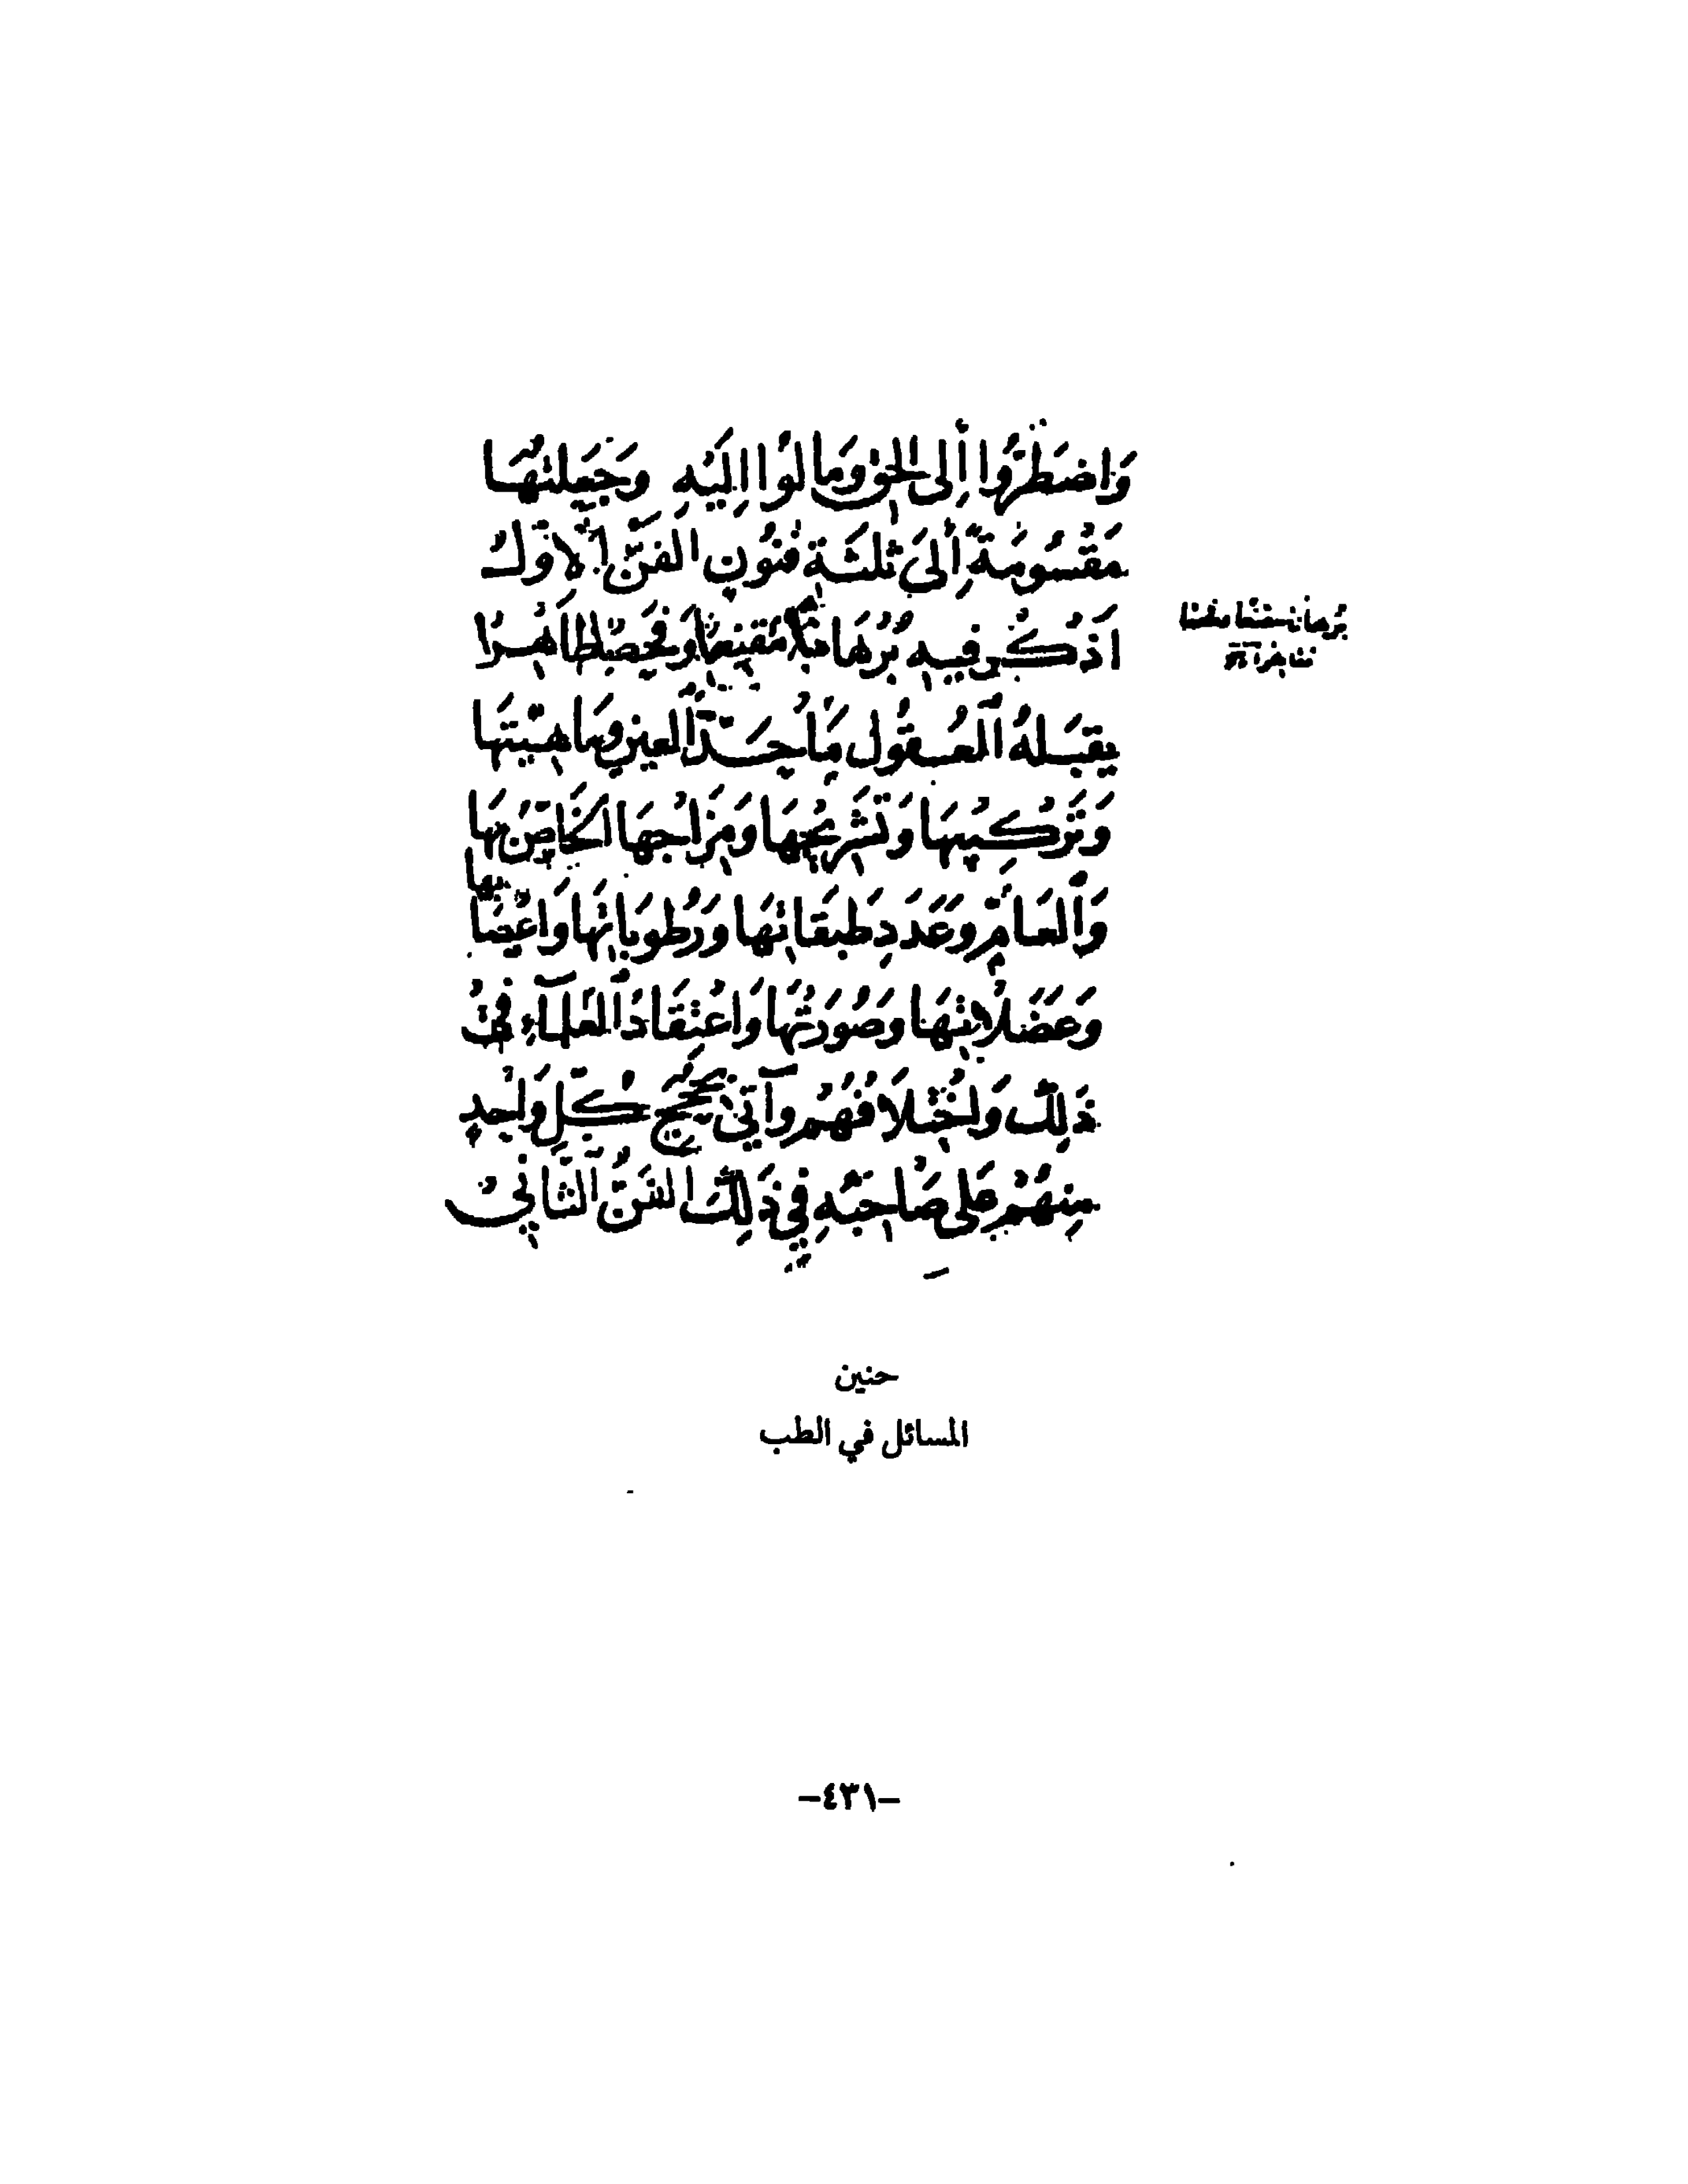 وَاضطَرُّوا إِلى الحَق وَمالوُا إِلَيْهِ وَجَعَلتُهَا
مَقْسُومَةً إِلىَ ثلثَة فنُونٍ الفَنّ الأَوَّلُ
اَذْكُر فِيهِ بُرْهَانًا مُقْنِعًا وَفَحصًا ظَاهِرًا
برهانا
يقبَلهُ العُقُول مَا حَدّ العين وَمَا هيّتهَا
وَتَركِيبهَا وَتَشرِيحُهَا وَمِزَاجهَا الخَاصّ بهَا
وَالعَامّ وَعَدَدِ طَبقَاتهَا وَرُطوبَاتهَا وَاعْصَابها
وَعَضَلاتِهَا وَصُورَتهَا وَاعْتِقَاد العُلمَآءِ في
ذَلِكَ وَاختِلَافهُمْ وَآتي بحُجَج كُلّ وَاحِدٍ
مِنهُمْ عَلى صَاحِبهِ فِي ذَلِكَ الفَنُّ الثَّاني
حنين
المسائل في الطب
-٤٣١-